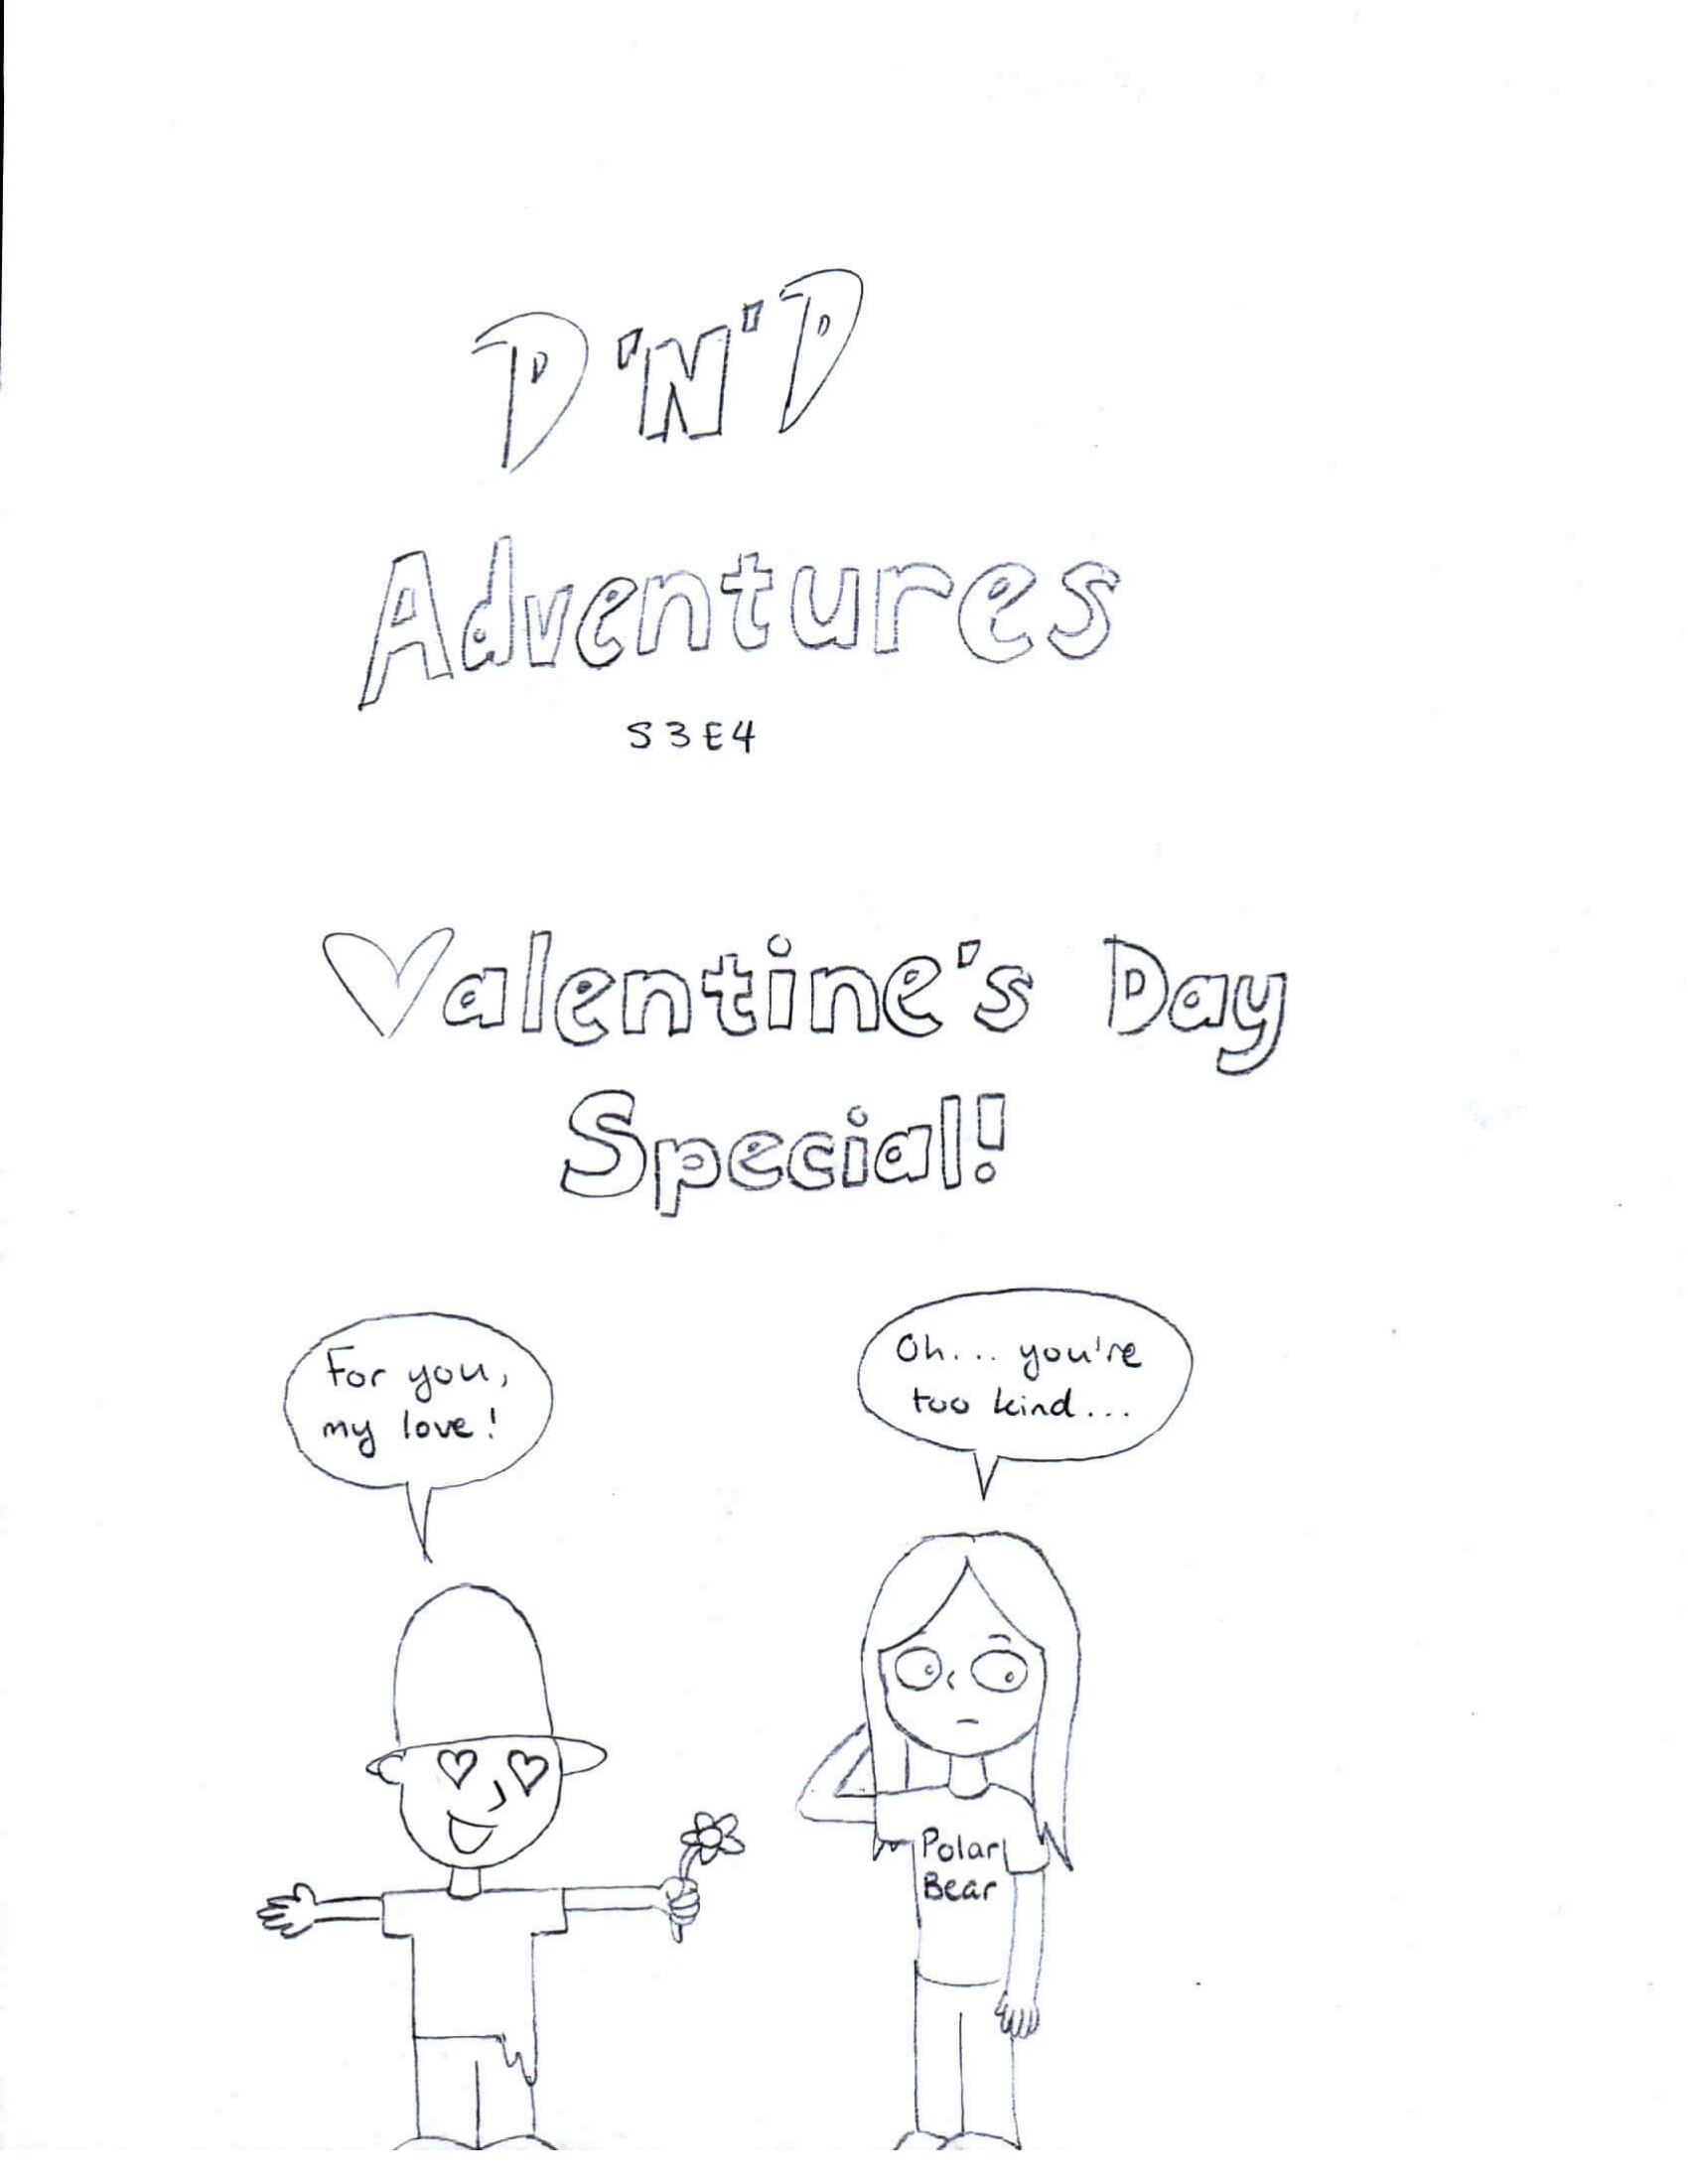 D'N'D
Adventures
S3E4
Valentine's Day
Special!
For you,
my love!
Oh... you're
too kind...
Polar
Bear